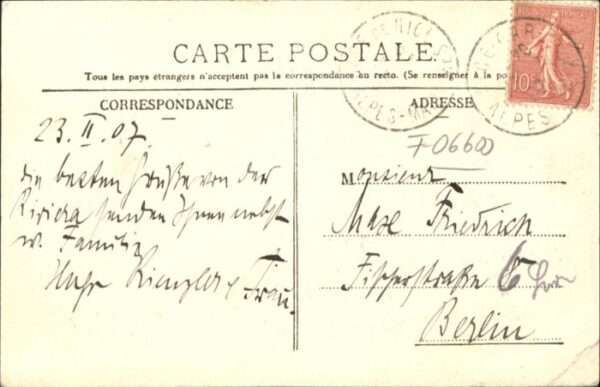 CARTE POSTALE.
Tous les pays étrangers n'acceptent pas la correspondance au recto. (Se renseigner à la po
CORRESPONDANCE
ADRESSE
23. II. 07.
die besten Grüße von der
Riviera senden Ihnen nebst
w. Familie
Hugo & Frau.
F06600
Monsieur
Max Friedrich
Fischerstraße 6
Berlin
10
ALPES-MA
ALPES